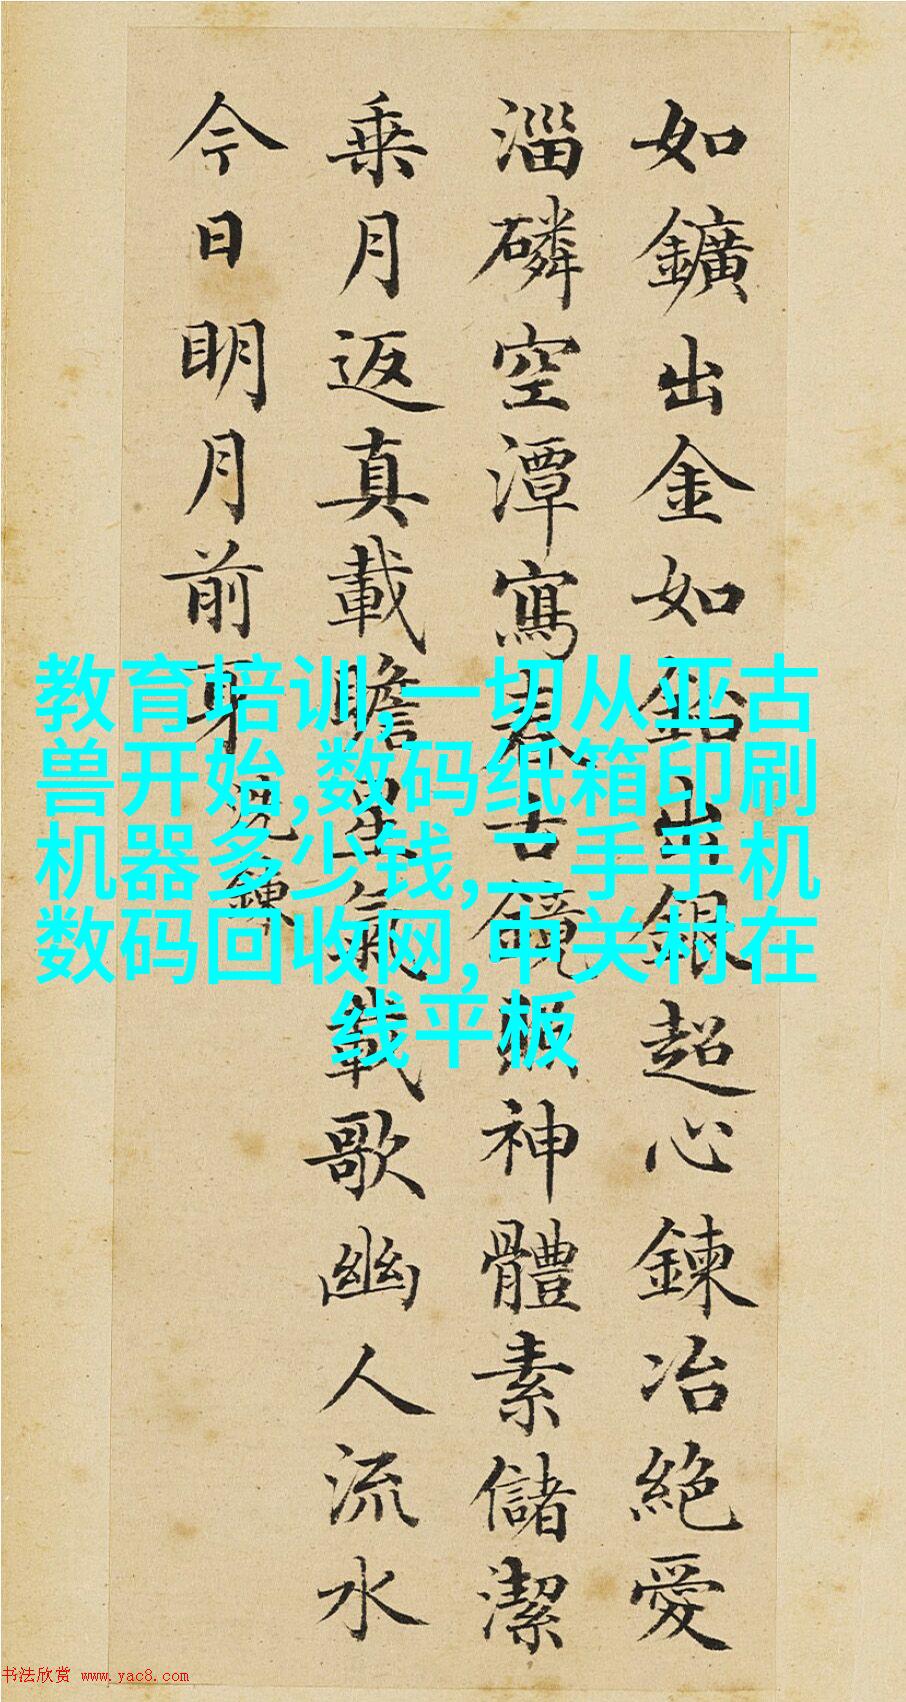 如鑛出金如鉛出銀超心鍊冶絕愛
淄磷空潭寫春古鏡照神體素儲潔
乘月返真載瞻星氣載歌幽人流水
今日明月前身
洗鍊
教育培训,一切从亚古
兽开始,数码纸箱印刷
机器多少钱,二手手机
数码回收网,中关村在
线平板
书法欣赏 www.yac8.com